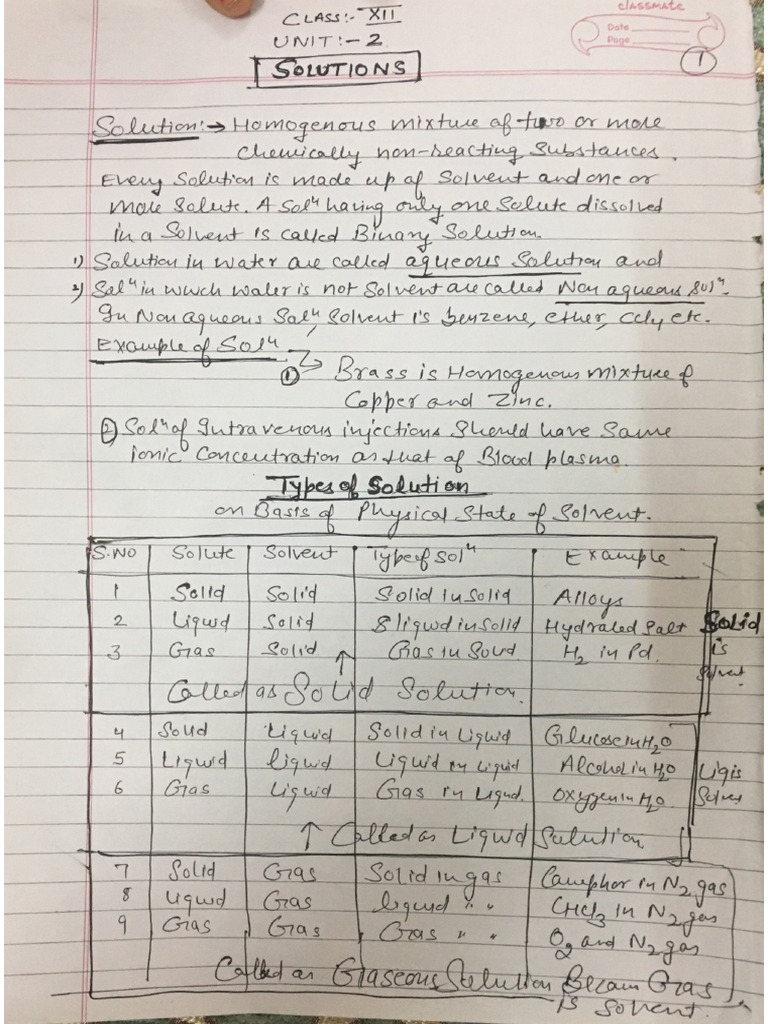 CLASS:- XII
classmate
Date
Page
1
UNIT:- 2
SOLUTIONS
Solution:→ Homogenous mixture of two or more
chemically non-reacting substances.
Every solution is made up of solvent and one or
more solute. A Solⁿ having only one solute dissolved
in a solvent is called Binary Solution.
1) Solution in water are called aqueous solution and
2) Solⁿ in which water is not solvent are called Non aqueous solⁿ.
In Non aqueous Solⁿ, solvent is benzene, ether, CCl4 etc.
Example of Solⁿ
① Brass is Homogenous mixture of
Copper and Zinc.
② Solⁿ of Intravenous injections should have same
ionic concentration as that of Blood plasma.
Types of Solution
on Basis of Physical State of Solvent.
S.NO Solute Solvent Type of Solⁿ Example
1 Solid Solid Solid in Solid Alloys
2 Liquid Solid liquid in solid Hydrated Salt Solid
3 Gas Solid ↑ Gas in Solid H2 in Pd. is
solvent
Called as Solid Solution.
4 Solid Liquid Solid in Liquid Glucose in H2O
5 Liquid liquid Liquid in Liquid Alcohol in H2O Liq is
6 Gas Liquid Gas in Liquid. Oxygen in H2O Solvent
↑ Called as Liquid Solution
7 Solid Gas Solid in gas Camphor in N2 gas
8 Liquid Gas liquid " " CHCl3 in N2 gas
9 Gas Gas Gas " " O2 and N2 gas
Called as Gaseous Solution Becaus Gas
is solvent.